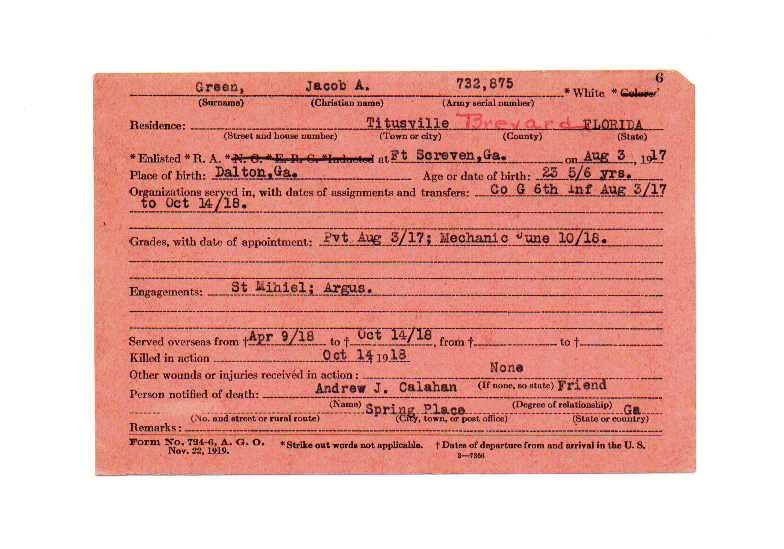 6
Green, Jacob A. 732,875 * White * Colored
(Surname) (Christian name) (Army serial number)
Residence: Titusville Brevard FLORIDA
(Street and house number) (Town or city) (County) (State)
* Enlisted * R. A. * N. G. * E. R. C. * Inducted at Ft Screven,Ga. on Aug 3, 1917
Place of birth: Dalton,Ga. Age or date of birth: 23 5/6 yrs.
Organizations served in, with dates of assignments and transfers: Co G 6th Inf Aug 3/17
to Oct 14/18.
Grades, with date of appointment: Pvt Aug 3/17; Mechanic June 10/18.
Engagements: St Mihiel; Argus.
Served overseas from † Apr 9/18 to † Oct 14/18, from † to †
Killed in action Oct 14, 1918
Other wounds or injuries received in action: None
Person notified of death: Andrew J. Calahan (If none, so state) Friend
(Name) (Degree of relationship)
Spring Place Ga
(No. and street or rural route) (City, town, or post office) (State or country)
Remarks:
Form No. 724-6, A. G. O. * Strike out words not applicable. † Dates of departure from and arrival in the U. S.
Nov. 22, 1919. 3—7366